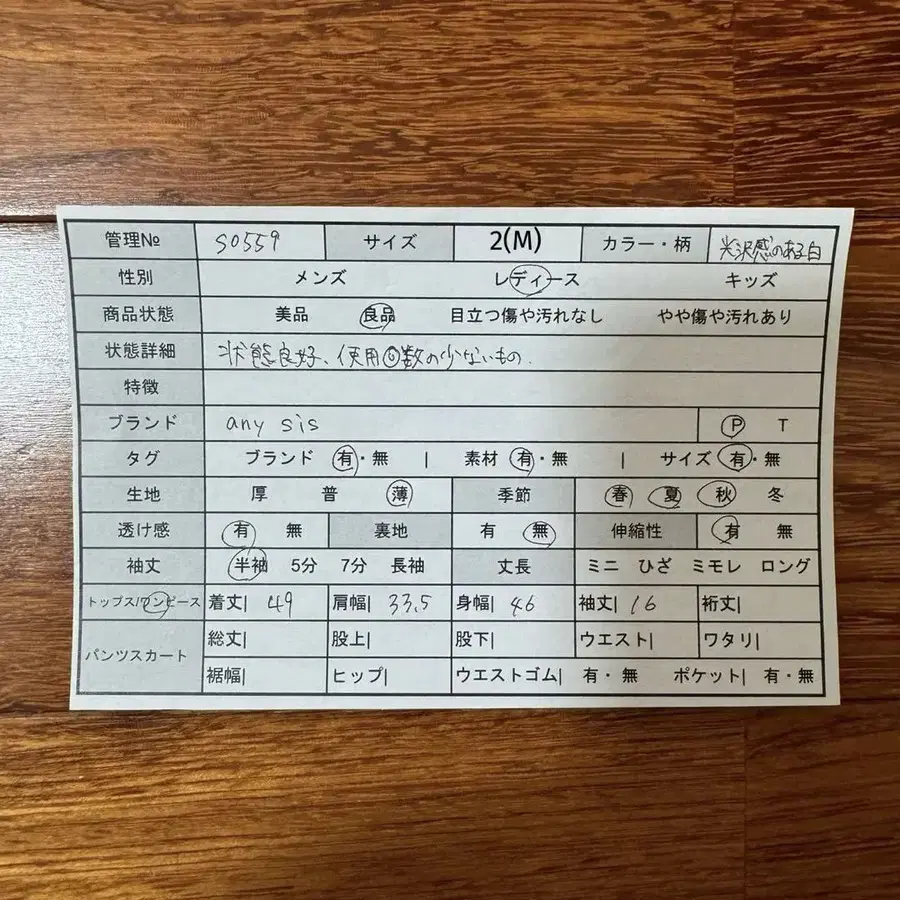 管理№ S0559 サイズ 2(M) カラー・柄 光沢感のある白
性別 メンズ レディース キッズ
商品状態 美品 良品 目立つ傷や汚れなし やや傷や汚れあり
状態詳細 状態良好、使用回数の少ないもの.
特徴
ブランド any sis P T
タグ ブランド 有・無 | 素材 有・無 | サイズ 有・無
生地 厚 普 薄 季節 春 夏 秋 冬
透け感 有 無 裏地 有 無 伸縮性 有 無
袖丈 半袖 5分 7分 長袖 丈長 ミニ ひざ ミモレ ロング
トップス/ワンピース 着丈| 49 肩幅| 33.5 身幅| 46 袖丈| 16 裄丈|
パンツスカート 総丈| 股上| 股下| ウエスト| ワタリ|
裾幅| ヒップ| ウエストゴム| 有・無 ポケット| 有・無